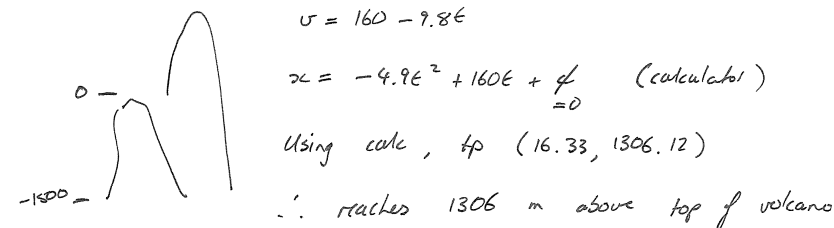 v = 160 - 9.8t
x = -4.9t² + 160t + c (calculator)
=0
0
Using calc, tp (16.33, 1306.12)
-1500
∴ reaches 1306 m above top of volcano